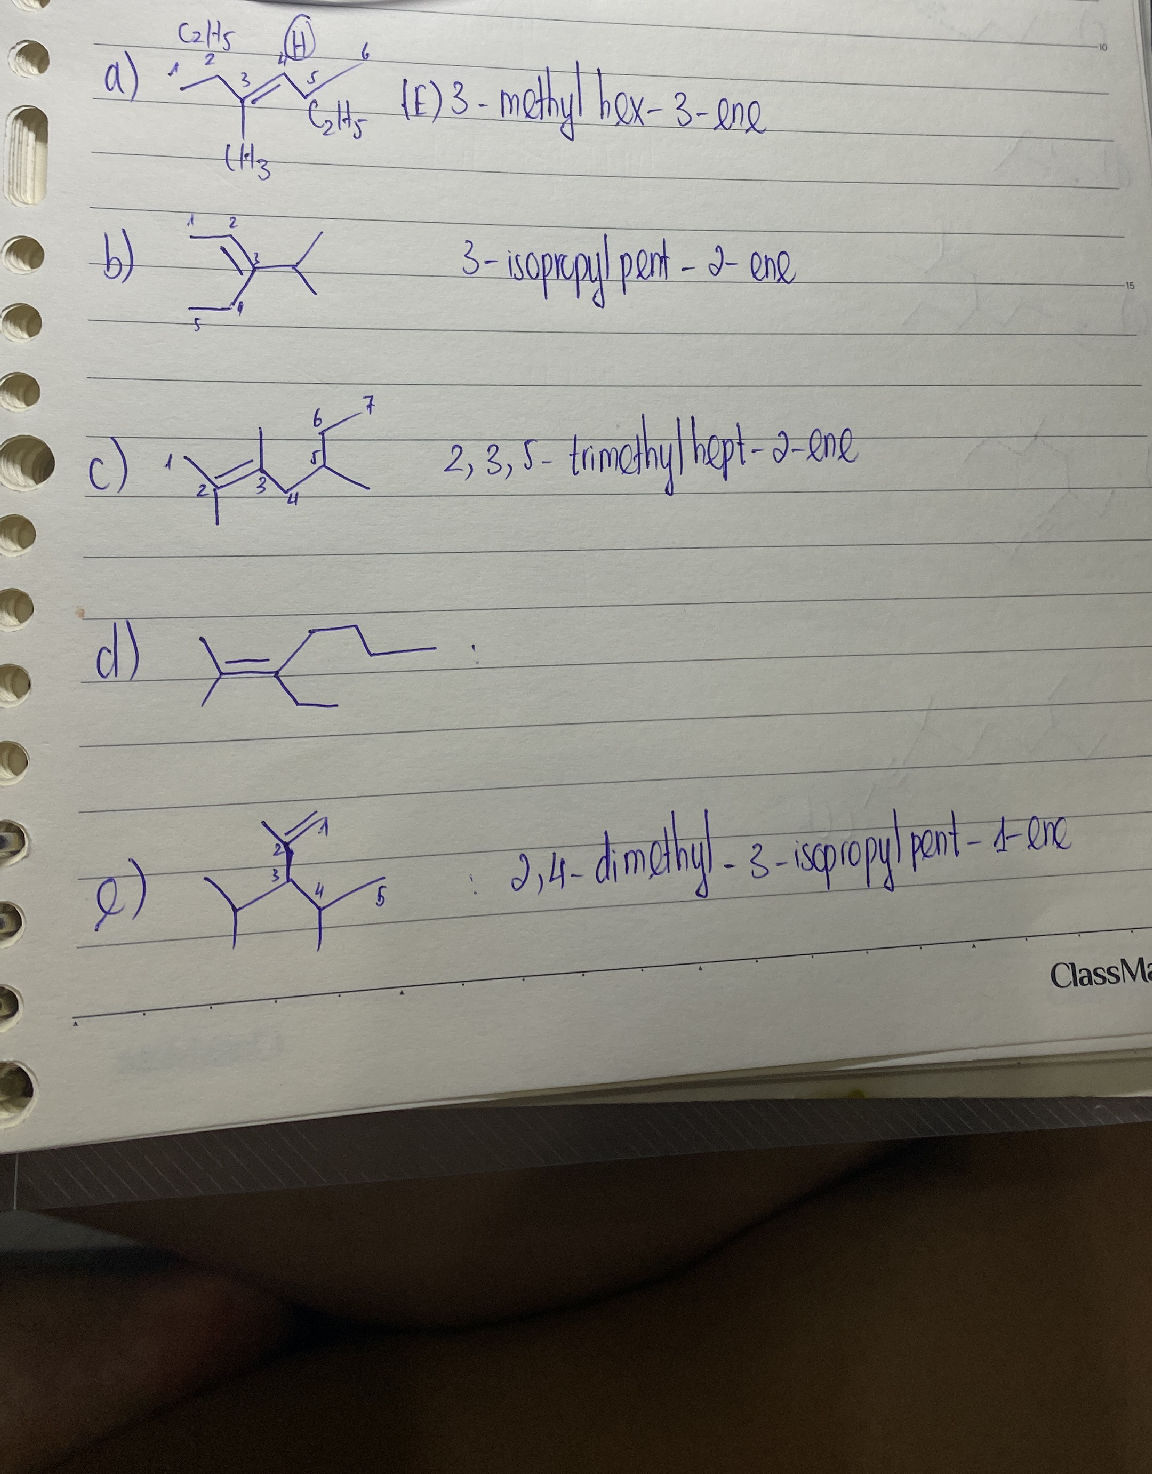 10
C2H5 H
a) 1 2 3 4 5 6 (E) 3 - methyl hex - 3 - ene
C2H5
CH3
b) 1 2 3 4 5 3 - isopropyl pent - 2 - ene
15
c) 1 2 3 4 5 6 7 2, 3, 5 - trimethyl hept - 2 - ene
d) :
e) 1 2 3 4 5 : 2,4 - dimethyl - 3 - isopropyl pent - 1 - ene
ClassMa